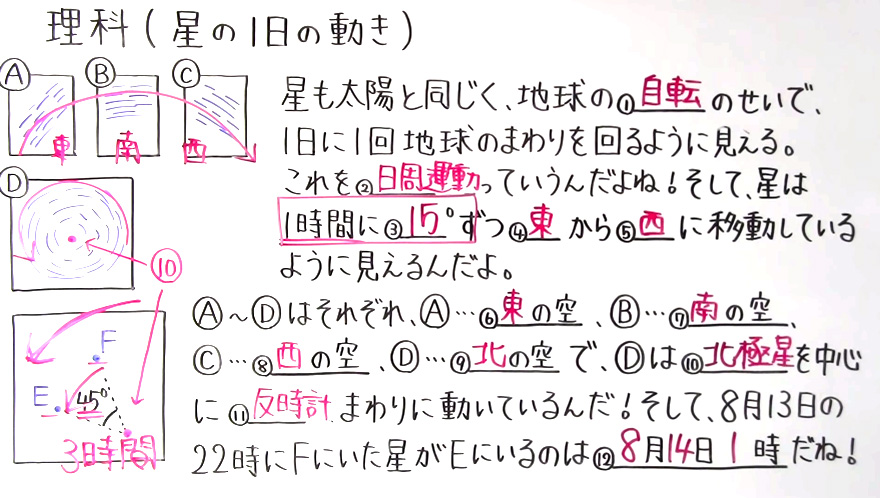 理科(星の1日の動き)
Ⓐ Ⓑ Ⓒ
東 南 西
Ⓓ
⑩
F
E 45°
3時間
星も太陽と同じく、地球の①自転のせいで、
1日に1回地球のまわりを回るように見える。
これを②日周運動っていうんだよね！そして、星は
1時間に③15°ずつ④東から⑤西に移動している
ように見えるんだよ。
Ⓐ〜Ⓓはそれぞれ、Ⓐ…⑥東の空、Ⓑ…⑦南の空、
Ⓒ…⑧西の空、Ⓓ…⑨北の空で、Ⓓは⑩北極星を中心
に⑪反時計まわりに動いているんだ！そして、8月13日の
22時にFにいた星がEにいるのは⑫8月14日1時だね！